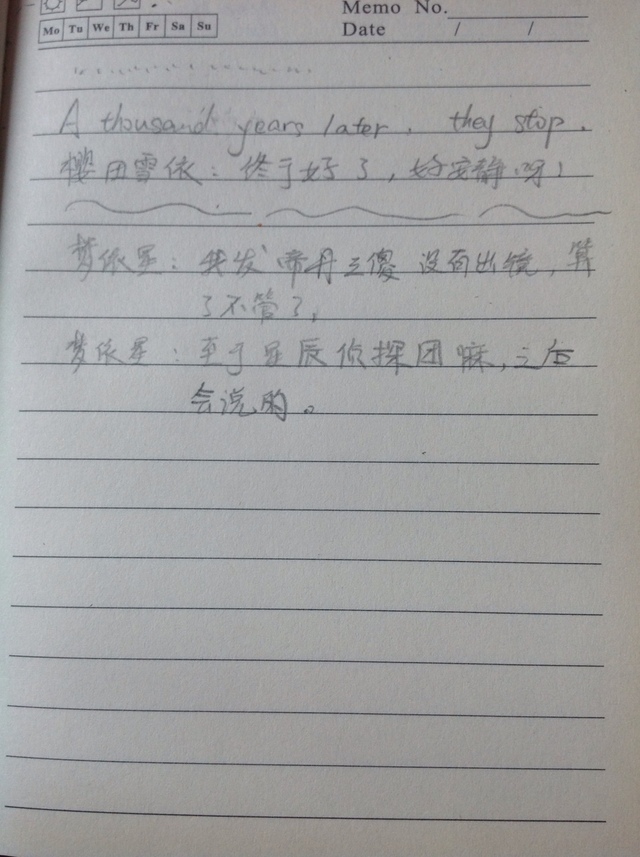 Memo No.
Mo Tu We Th Fr Sa Su
Date / /
A thousand years later, they stop.
樱田雪依：终于好了，好安静呀！
梦依星：共发帝丹三傻 没有出镜，算
了不管了，
梦依星：至于星辰侦探团嘛，之后
会说的。